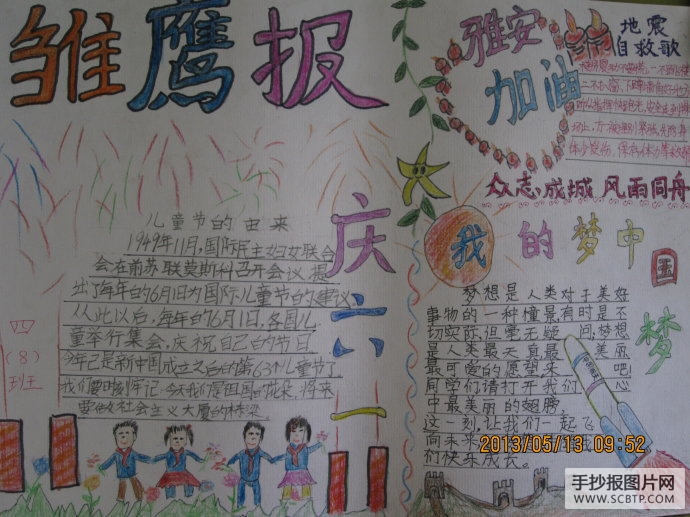 雏鹰报
儿童节的由来
1949年11月,国际民主妇女联合
会在前苏联莫斯科召开会议,提
出了每年的6月1日为国际儿童节的建议
从此以后,每年的6月1日,各国儿
童举行集会,庆祝自己的节日
今年已是新中国成立之后的第63个儿童节了
我们要时刻牢记:今天我们是祖国的花朵,将来
要做社会主义大厦的栋梁
四
(8)
班
庆
六
一
雅安
加油
地震
自救歌
众志成城 风雨同舟
我的梦中
国
梦
梦想是人类对于美好
事物的一种憧景,有时是不
切实际,但毫无疑问,梦想
是人类最天真最美丽
最可爱的愿望来吧!
同学们请打开我们心
中最美丽的翅膀
这一刻,让我们一起飞
向未来
们快乐成长。
2013/05/13 09:52
手抄报图片网
WWW.SCBTP.COM